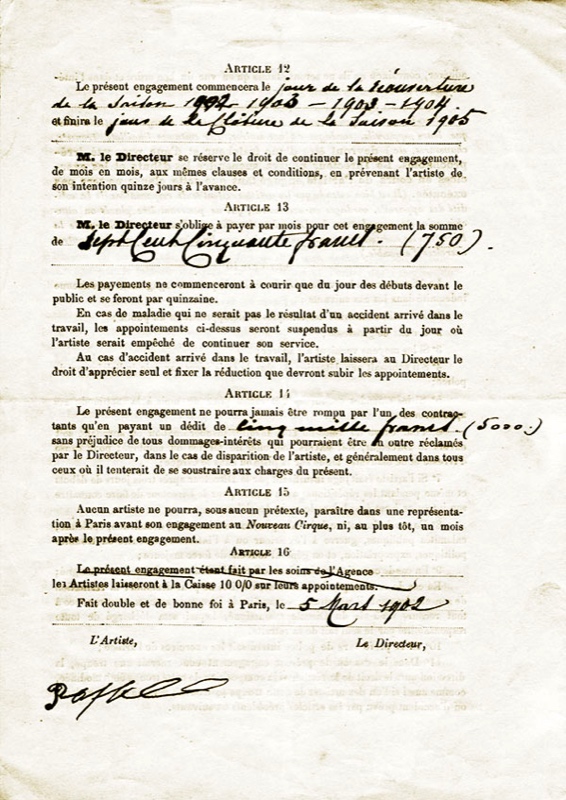 ARTICLE 12
Le présent engagement commencera le jour de la réouverture
de la Saison 1902-1903-1903-1904.
et finira le jour de la Clôture de la Saison 1905
M. le Directeur se réserve le droit de continuer le présent engagement,
de mois en mois, aux mêmes clauses et conditions, en prévenant l'artiste de
son intention quinze jours à l'avance.
ARTICLE 13
M. le Directeur s'oblige à payer par mois pour cet engagement la somme
de Sept Cent Cinquante francs. (750).
Les payements ne commenceront à courir que du jour des débuts devant le
public et se feront par quinzaine.
En cas de maladie qui ne serait pas le résultat d'un accident arrivé dans le
travail, les appointements ci-dessus seront suspendus à partir du jour où
l'artiste serait empêché de continuer son service.
Au cas d'accident arrivé dans le travail, l'artiste laissera au Directeur le
droit d'apprécier seul et fixer la réduction que devront subir les appointements.
ARTICLE 14
Le présent engagement ne pourra jamais être rompu par l'un des contrac-
tants qu'en payant un dédit de Cinq mille francs. (5000.)
sans préjudice de tous dommages-intérêts qui pourraient être en outre réclamés
par le Directeur, dans le cas de disparition de l'artiste, et généralement dans tous
ceux où il tenterait de se soustraire aux charges du présent.
ARTICLE 15
Aucun artiste ne pourra, sous aucun prétexte, paraître dans une représenta-
tion à Paris avant son engagement au Nouveau Cirque, ni, au plus tôt, un mois
après le présent engagement.
ARTICLE 16
Le présent engagement étant fait par les soins de l'Agence
les Artistes laisseront à la Caisse 10 0/0 sur leurs appointements.
Fait double et de bonne foi à Paris, le 5 Mars 1902
L'Artiste,
Le Directeur,